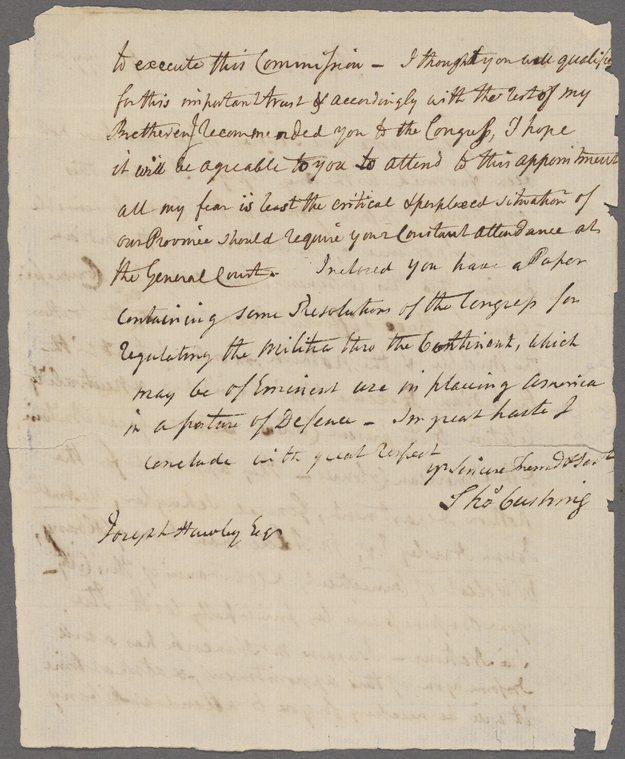 to execute this Commission – I thought you well qualifie
for this important trust & accordingly with the rest of my
Bretheren I recommended you to the Congress, I hope
it will be agreable to you to attend to this appointment
all my fear is least the critical & perplexed situation of
our Province should require your Constant attendance at
the General Court – Inclosed you have a Paper
containing some Resolutions of the Congress for
regulating the Militia thro the Continent, which
may be of Eminent use in placing America
in a posture of Defence – In great haste I
conclude with great respect
yr Sincere Friend & Servt
Thos Cushing
Joseph Hawley Esqr